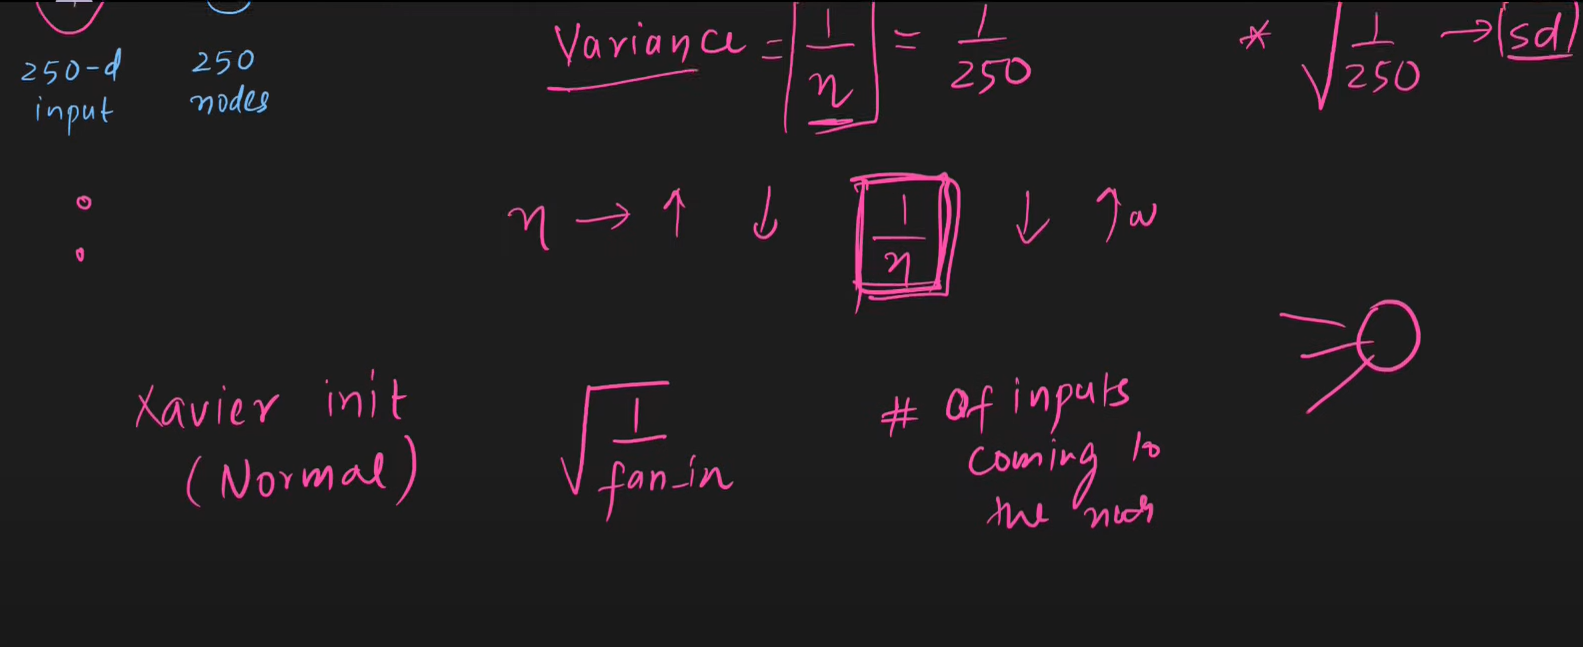 250-d input
250 nodes
Variance = 1/n = 1/250
* √1/250 → sd
n → ↑ ↓ 1/n ↓ ↑ w
Xavier init
(Normal)
√1/fan_in
# of inputs
coming to
the node